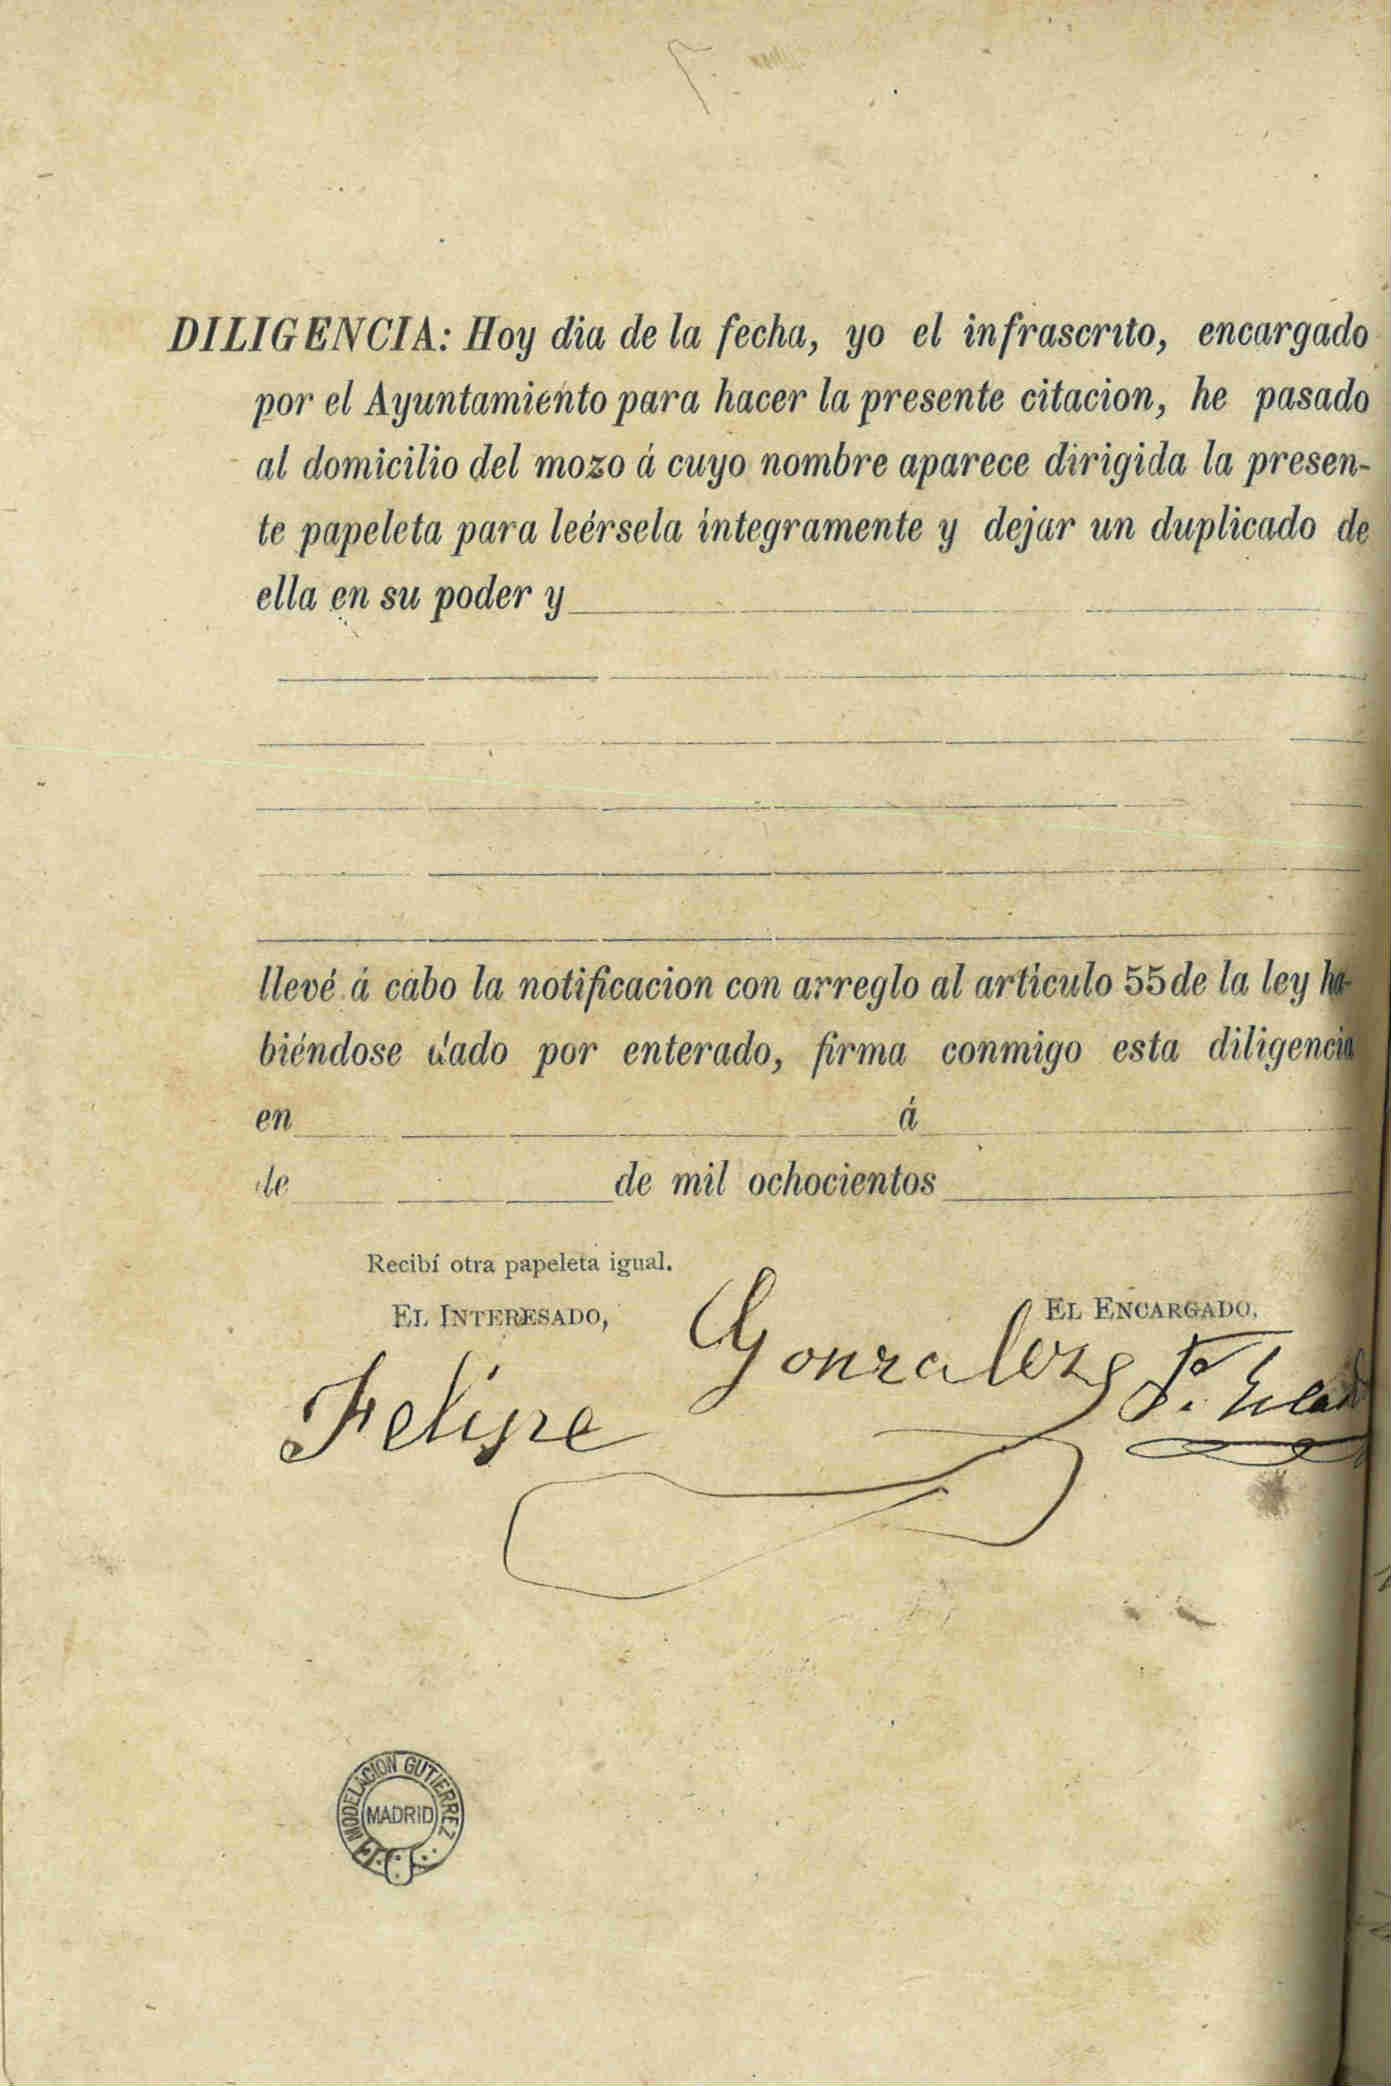 DILIGENCIA: Hoy dia de la fecha, yo el infrascrito, encargado
por el Ayuntamiento para hacer la presente citacion, he pasado
al domicilio del mozo á cuyo nombre aparece dirigida la presen-
te papeleta para leérsela íntegramente y dejar un duplicado de
ella en su poder y
llevé á cabo la notificacion con arreglo al artículo 55 de la ley ha-
biéndose dado por enterado, firma conmigo esta diligencia
en á
de de mil ochocientos
Recibí otra papeleta igual.
EL INTERESADO, EL ENCARGADO,
Felipe Gonzalez
MODELACION GUTIERREZ
MADRID